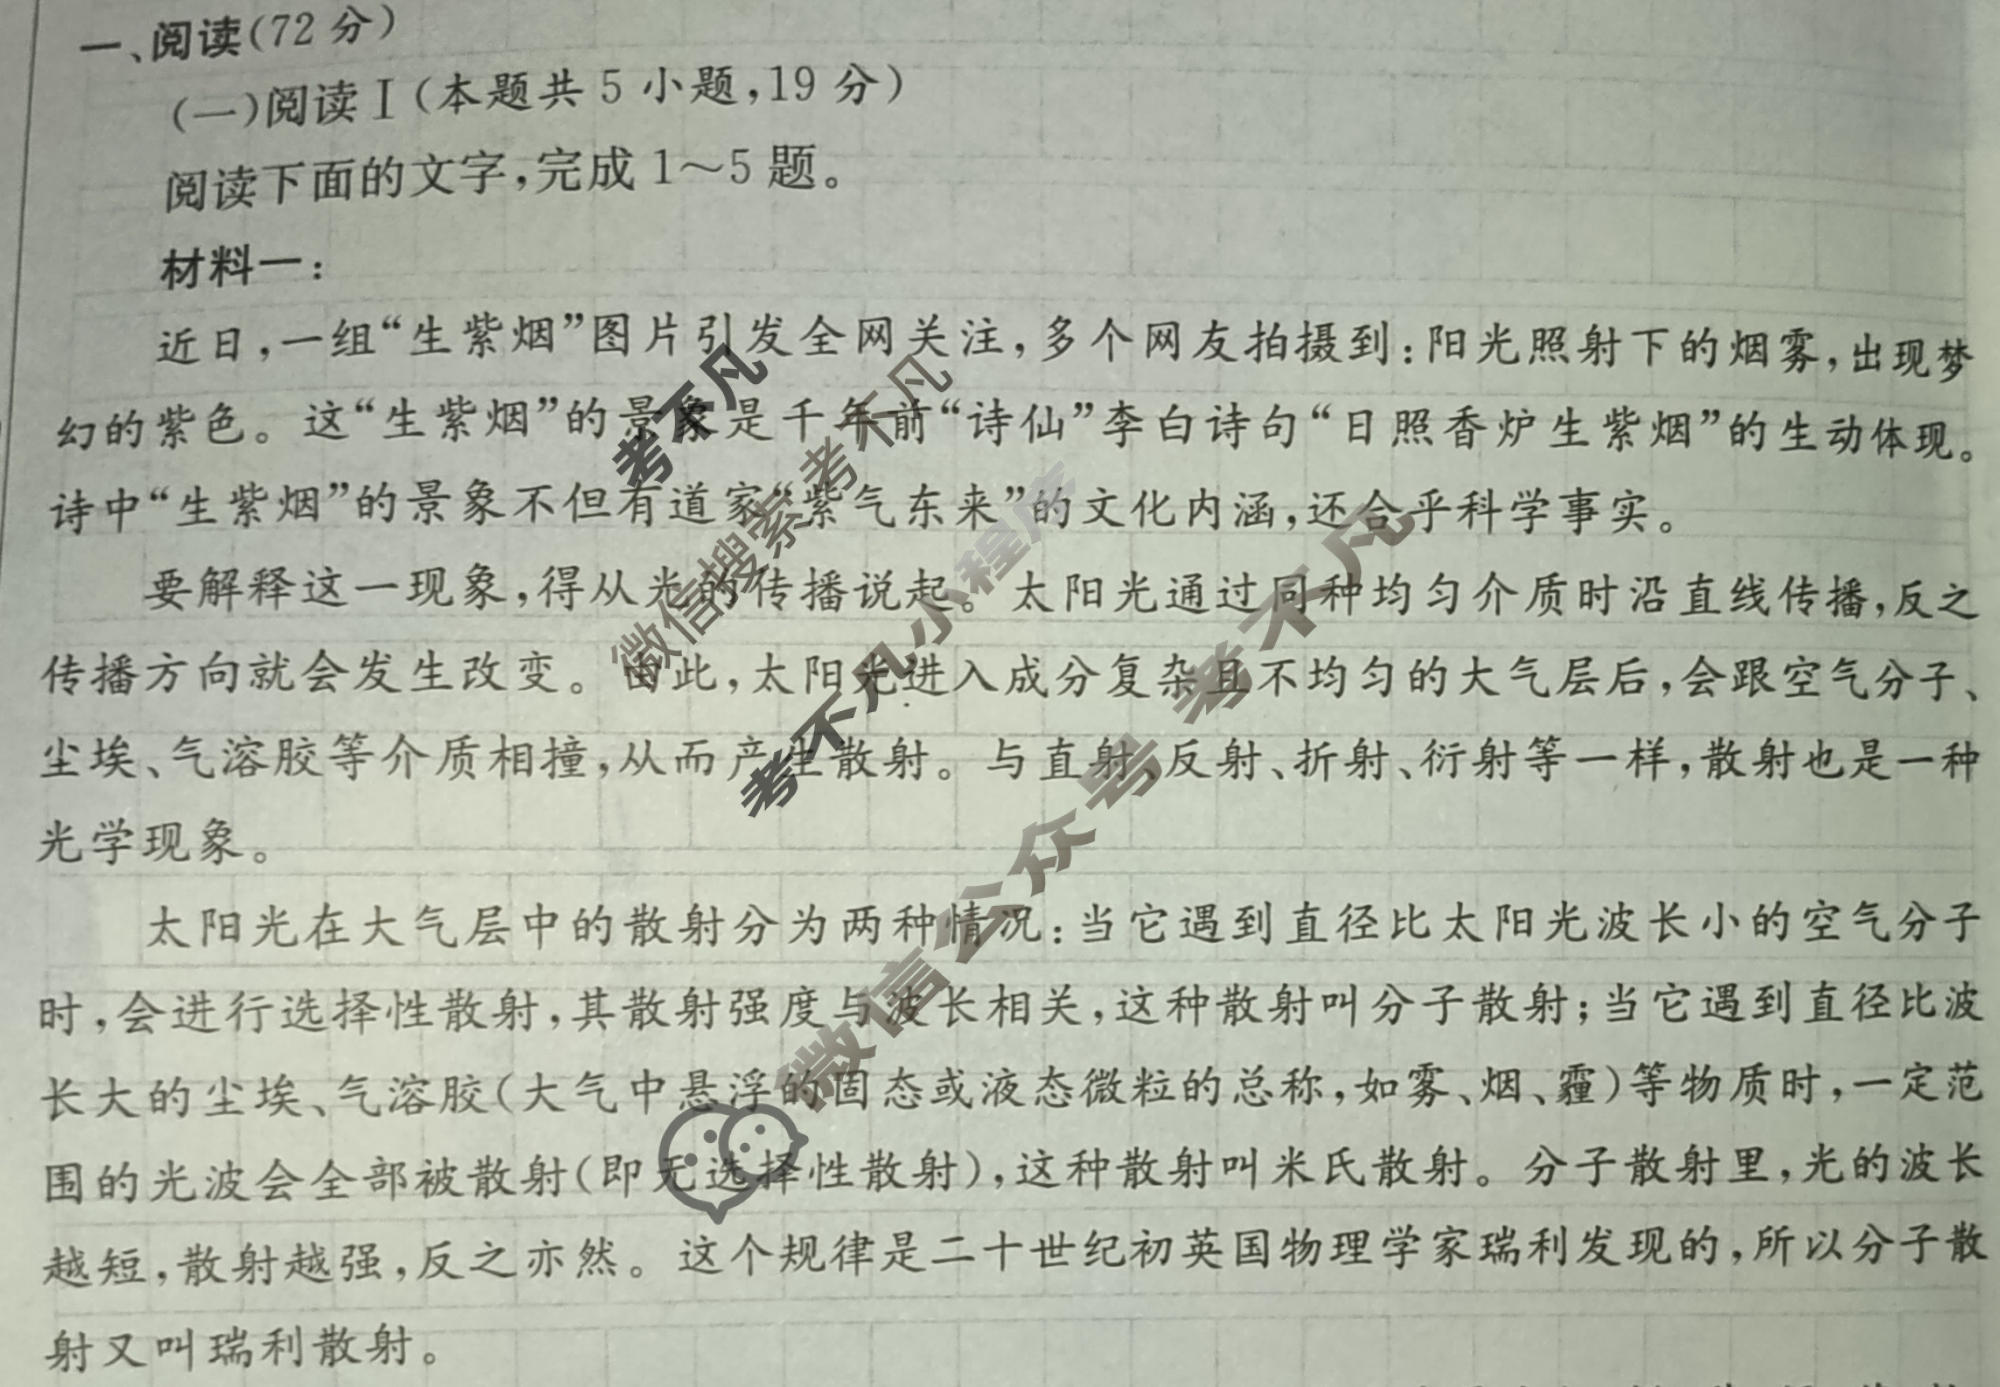 一、阅读(72分)
(一)阅读Ⅰ(本题共5小题,19分)
阅读下面的文字,完成1～5题。
材料一:
近日,一组“生紫烟”图片引发全网关注,多个网友拍摄到:阳光照射下的烟雾,出现梦
幻的紫色。这“生紫烟”的景象是千年前“诗仙”李白诗句“日照香炉生紫烟”的生动体现。
诗中“生紫烟”的景象不但有道家“紫气东来”的文化内涵,还合乎科学事实。
要解释这一现象,得从光的传播说起。太阳光通过同种均匀介质时沿直线传播,反之
传播方向就会发生改变。由此,太阳光进入成分复杂且不均匀的大气层后,会跟空气分子、
尘埃、气溶胶等介质相撞,从而产生散射。与直射、反射、折射、衍射等一样,散射也是一种
光学现象。
太阳光在大气层中的散射分为两种情况:当它遇到直径比太阳光波长小的空气分子
时,会进行选择性散射,其散射强度与波长相关,这种散射叫分子散射;当它遇到直径比波
长大的尘埃、气溶胶(大气中悬浮的固态或液态微粒的总称,如雾、烟、霾)等物质时,一定范
围的光波会全部被散射(即无选择性散射),这种散射叫米氏散射。分子散射里,光的波长
越短,散射越强,反之亦然。这个规律是二十世纪初英国物理学家瑞利发现的,所以分子散
射又叫瑞利散射。
考不凡
微信搜索 考不凡
考不凡小程序
微信公众号 考不凡